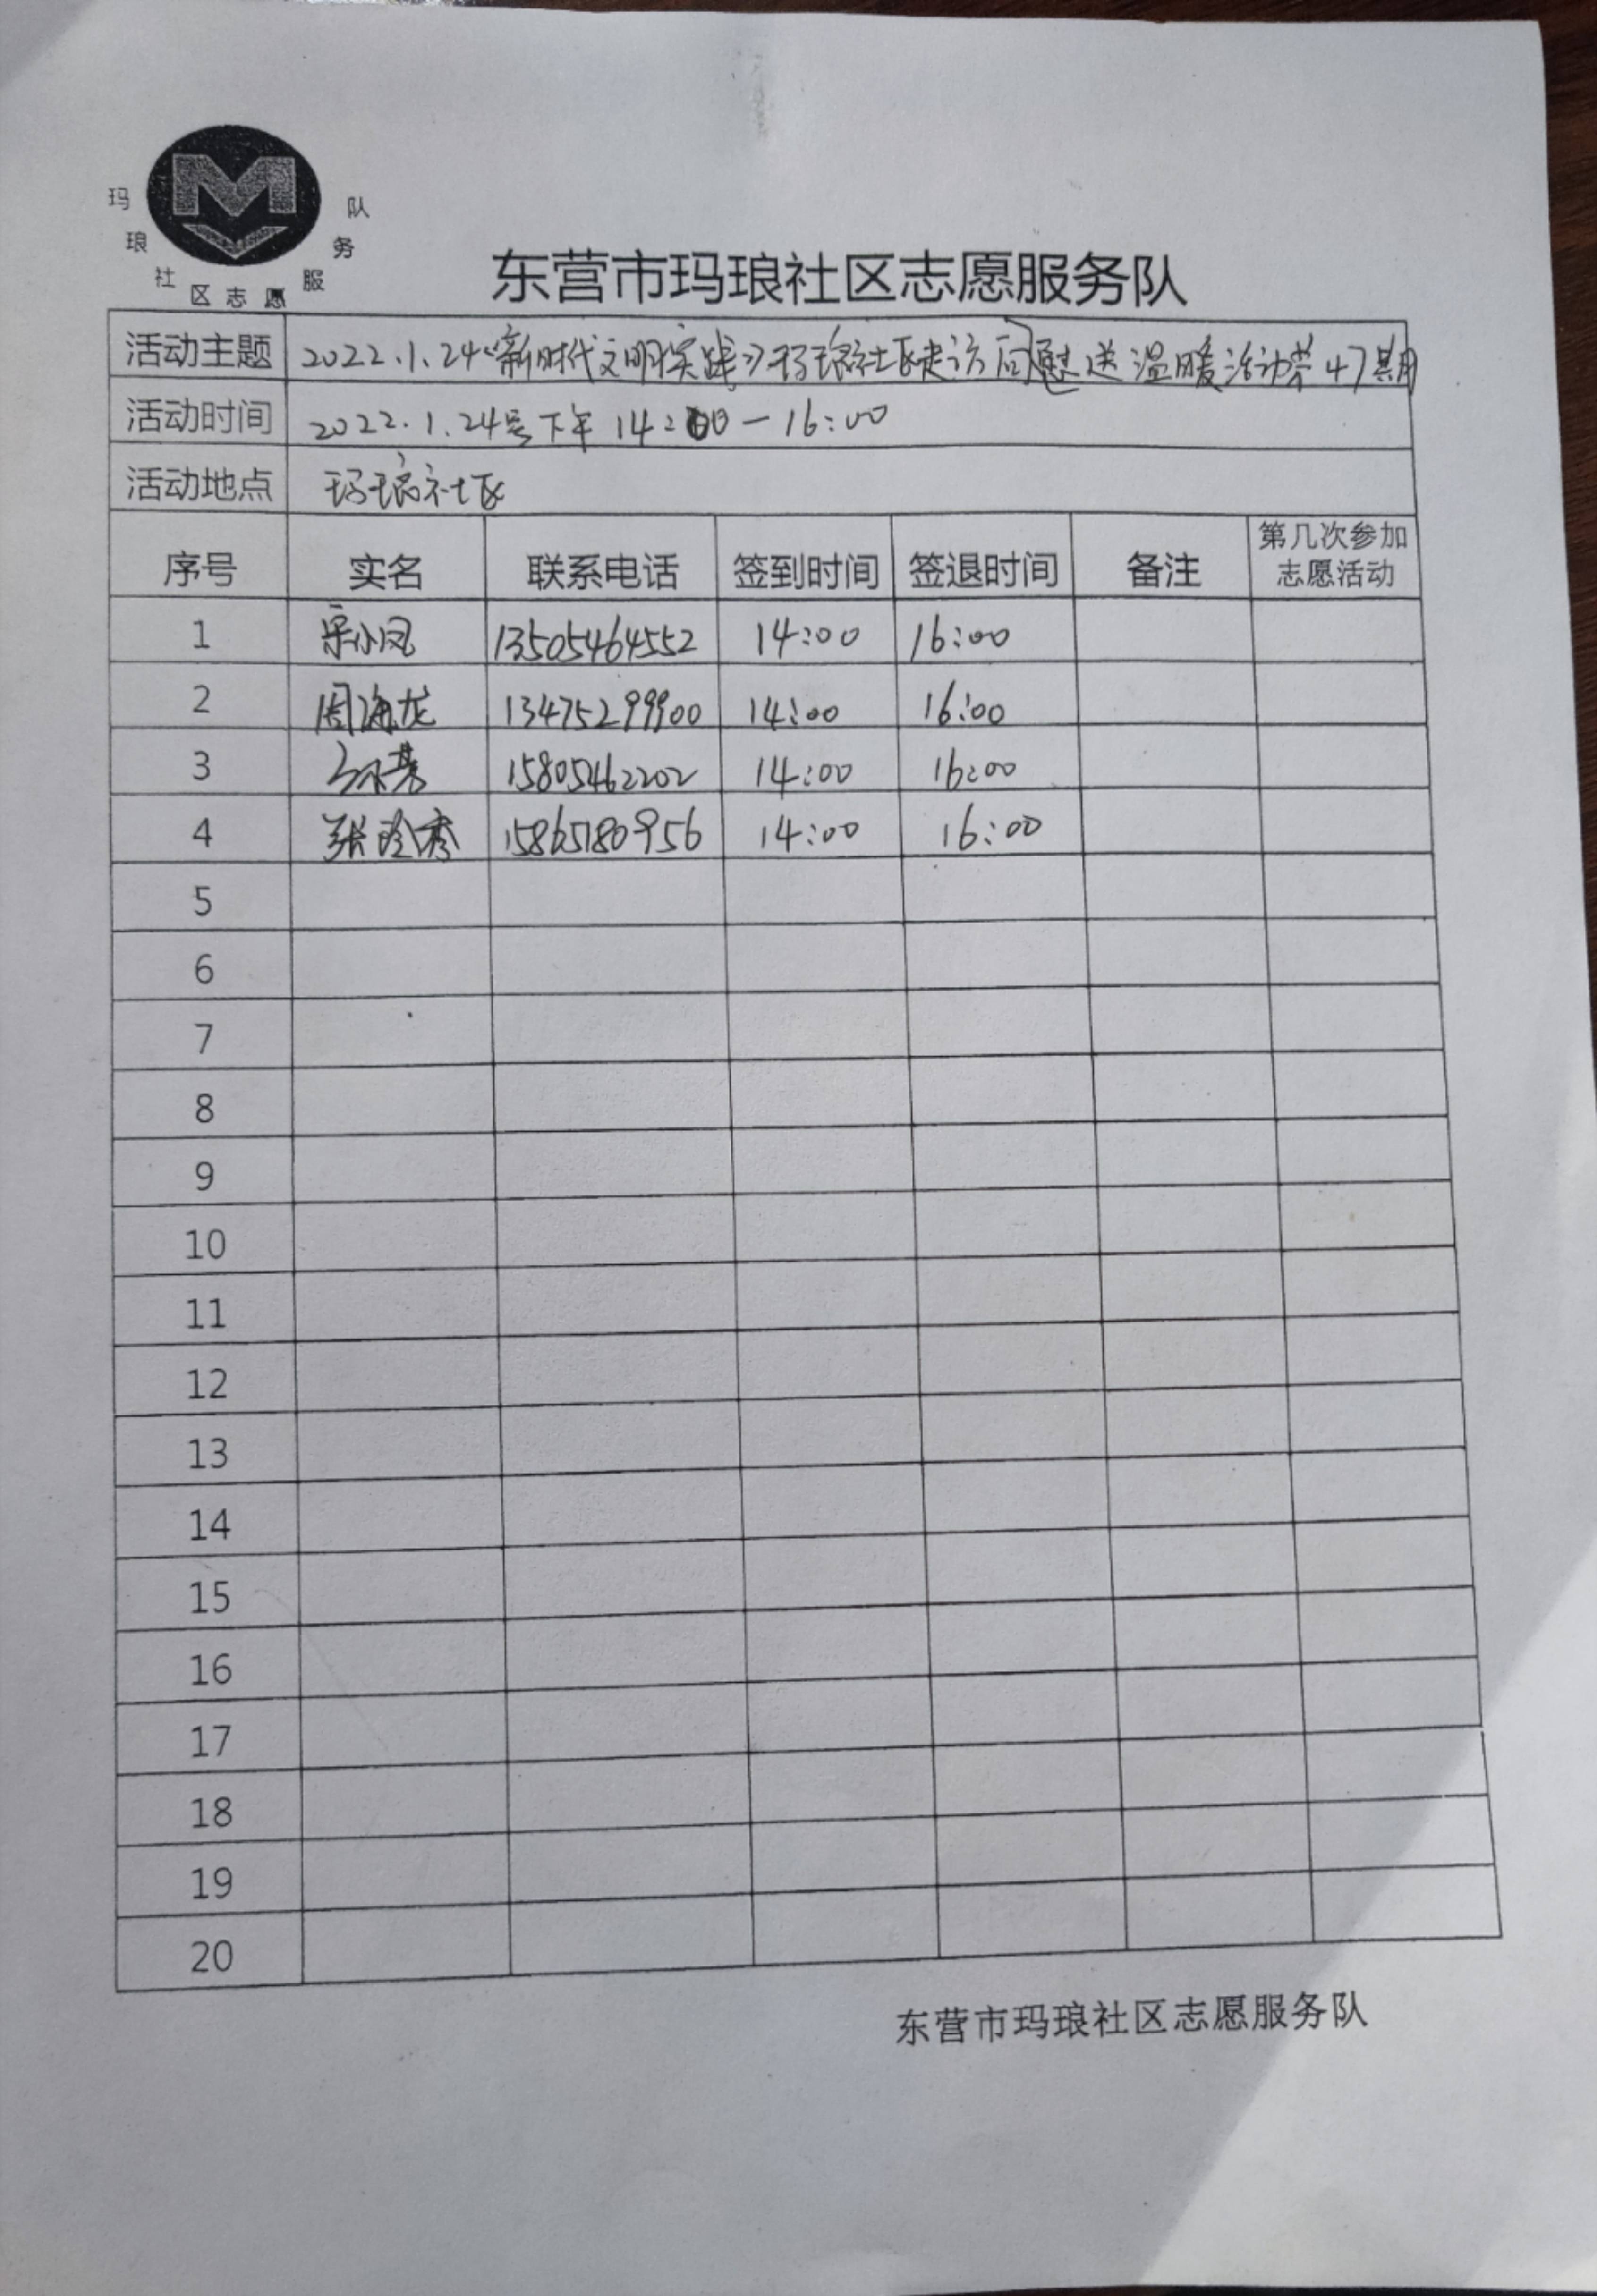 玛琅社区志愿服务队
东营市玛琅社区志愿服务队
活动主题 2022.1.24《新时代文明实践》玛琅社区走访问慰送温暖活动第47期
活动时间 2022.1.24号下午 14:00-16:00
活动地点 玛琅社区
序号 实名 联系电话 签到时间 签退时间 备注 第几次参加志愿活动
1 宋小凤 13505464552 14:00 16:00
2 周海龙 13475299900 14:00 16:00
3 15805462202 14:00 16:00
4 张玲秀 15865180956 14:00 16:00
5
6
7
8
9
10
11
12
13
14
15
16
17
18
19
20
东营市玛琅社区志愿服务队